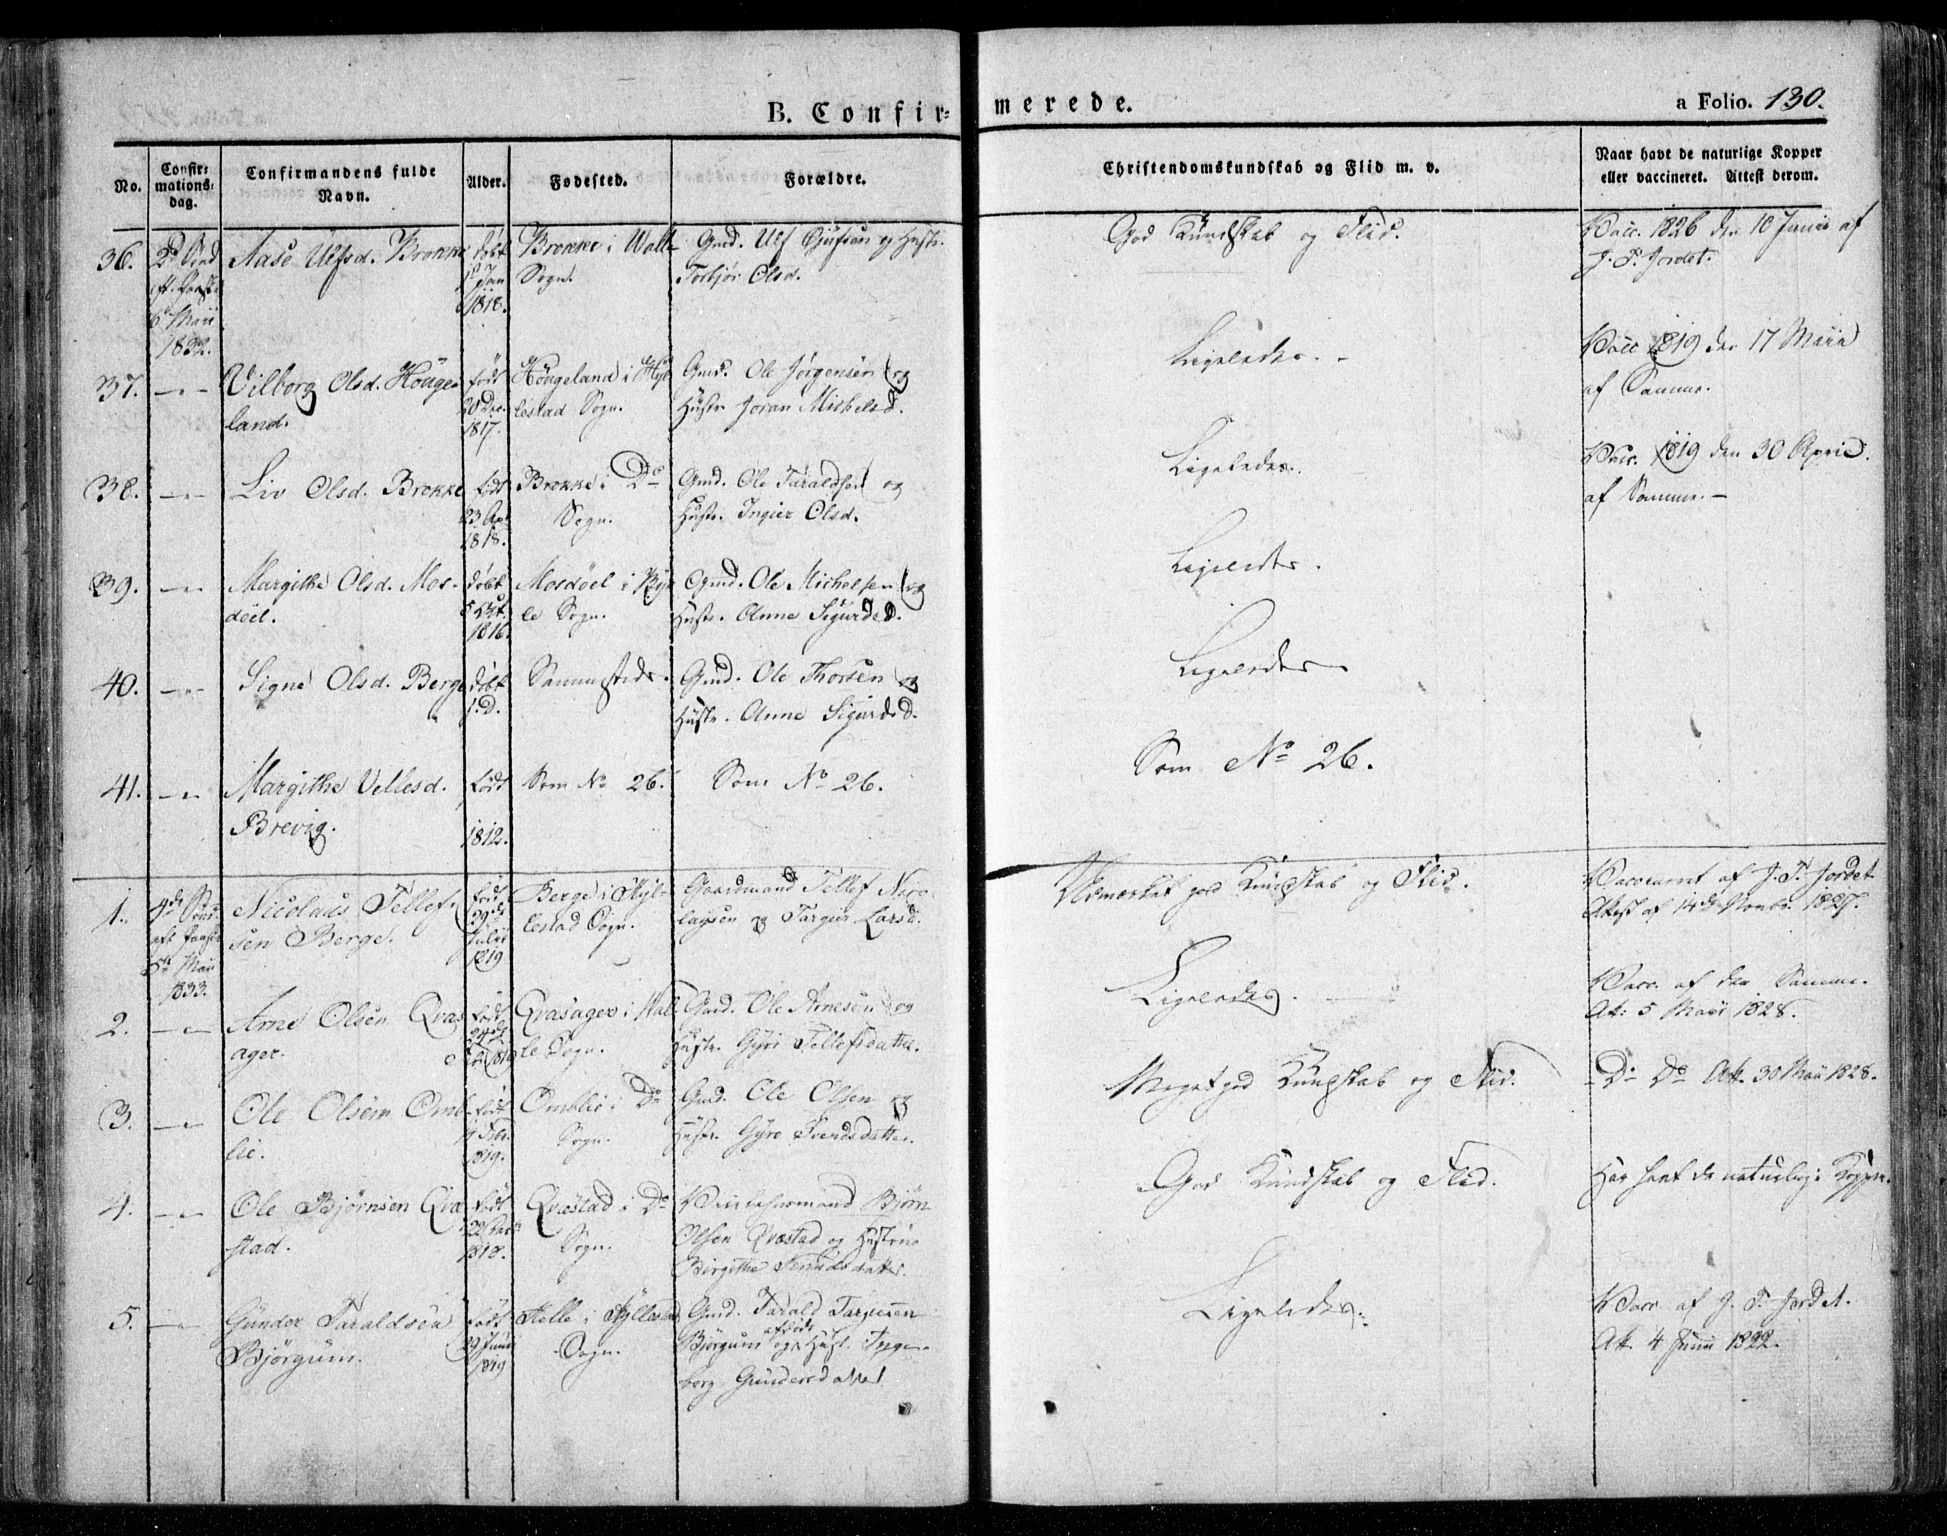 B. Confir-
merede.
a Folio. 130.
No.
Confir-
mations-
dag.
Confirmandens fulde
Navn.
Alder.
Fødested.
Forældre.
Christendomskundskab og Flid m. v.
Naar havt de naturlige Kopper
eller vaccineret. Attest derom.
36.
6 Maii
1832.
Aase Ulfsd. Brokke
døbt
1818.
Brokke i Walle
Sogn.
Gmd. Ulf og Hustr.
Torbjør Olsd.
God Kundskab og Flid.
Vacc. 1826 den 10 Junii af
J. T. Jordet.
37.
Vilborg Olsd. Hougе-
land.
født
20 Dec.
1817.
Hougeland i Hyl-
lestad Sogn.
Gmd. Ole Jørgensen og
Hustr. Joran Michelsd.
Ligeledes.
Vacc 1819 den 17 Maii
af Samme.
38.
Liv Olsd. Brokke
født
23 Apr.
1818.
Brokke i Do
Sogn.
Gmd. Ole Taraldsen og
Hustr. Ingier Olsd.
Ligeledes.
Vacc. 1819 den 30 April
af Samme.
39.
Margithe Olsd. Mos-
døel.
døbt
1816.
Mosdøel i Byk-
le Sogn.
Gmd. Ole Michelsen og
Hustr. Anne Sigurdsd.
Ligeledes.
40.
Signe Olsd. Berge
døbt
Sammesteds.
Gmd. Ole Thorsen og
Hustr. Anne Sigurdsd.
Ligeledes
41.
Margithe Vellesd.
Brevig.
født
1812.
Som No 26.
Som No 26.
Som No 26.
1.
4de Sønd.
eft. Paaske
5te Maii
1833.
Nicolaus Tellef-
sen Berge.
født
29de
Julii
1819
Berge i Hyl-
lestad Sogn.
Gaardmand Tellef Nico-
laysen og Targier Larsd.
Udmærket god Kundskab og Flid.
Vaccineret af J. T. Jordet
Attest af 14de Novbr. 1827.
2.
Arne Olsen Qvas-
ager.
født
24de
Qvasager i Wal-
le Sogn.
Gmd. Ole Arnesen og
Hustr. Gyri Tellefsdatter.
Ligeledes.
Vacc. af den Samme.
At. 5 Maii 1828.
3.
Ole Olsen Omb-
lie.
født
1819.
Omblie i Do
Sogn.
Gmd. Ole Olsen og
Hustr. Gyro Svendsdatter.
Meget god Kundskab og Flid.
Do Do Att. 30 Maii 1828.
4.
Ole Bjørnsen Qvæ-
stad.
født
1818.
Qvæstad i Do
Sogn.
Bjørn
Olsen Qvæstad og Hustrue
Birgithe
God Kundskab og Flid.
Har havt de naturlige Kopper.
5.
Gunder Taraldsen
Bjørgum.
født
29 Junii
1819
Helle i Hyllestad
Sogn.
Gmd. Tarald Targiesen
Bjørgum og afdøde Hust. Inge-
borg Gundersdatter
Ligeledes.
Vacc. af J. T. Jordet.
Att. 4 Junii 1822.